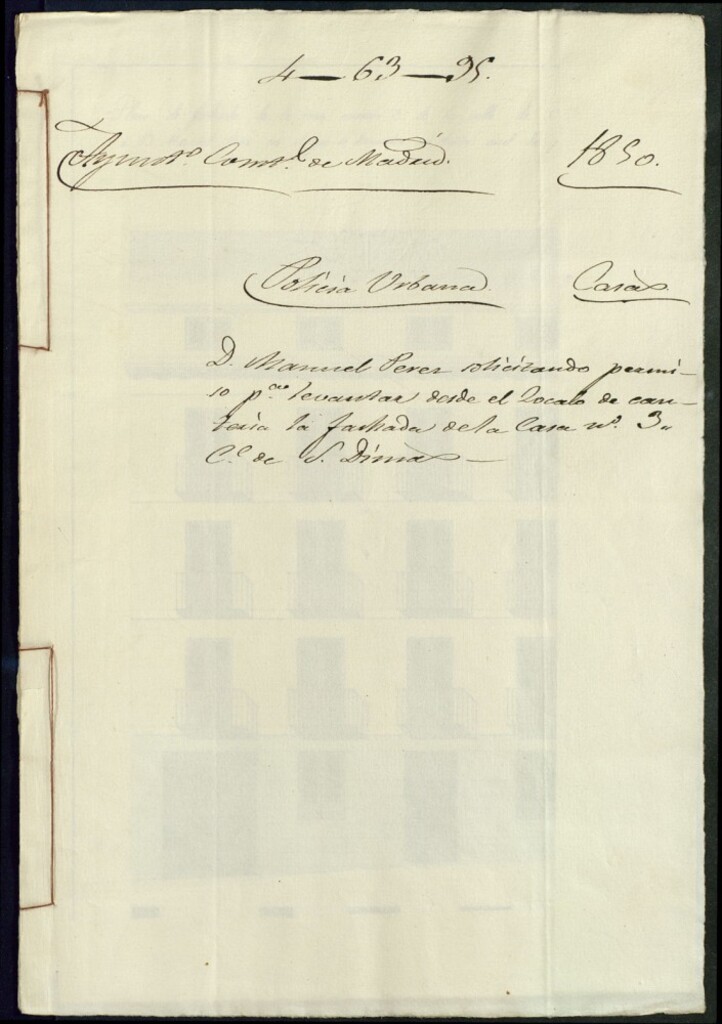 4—63—95.
Ayunto. Constl. de Madrid. 1850.
Policia Urbana. Casas.
D. Manuel Perez solicitando permi-
so pa. levantar desde el zocalo de can-
teria la fachada de la Casa no. 3„
Ce. de S. Dimas—